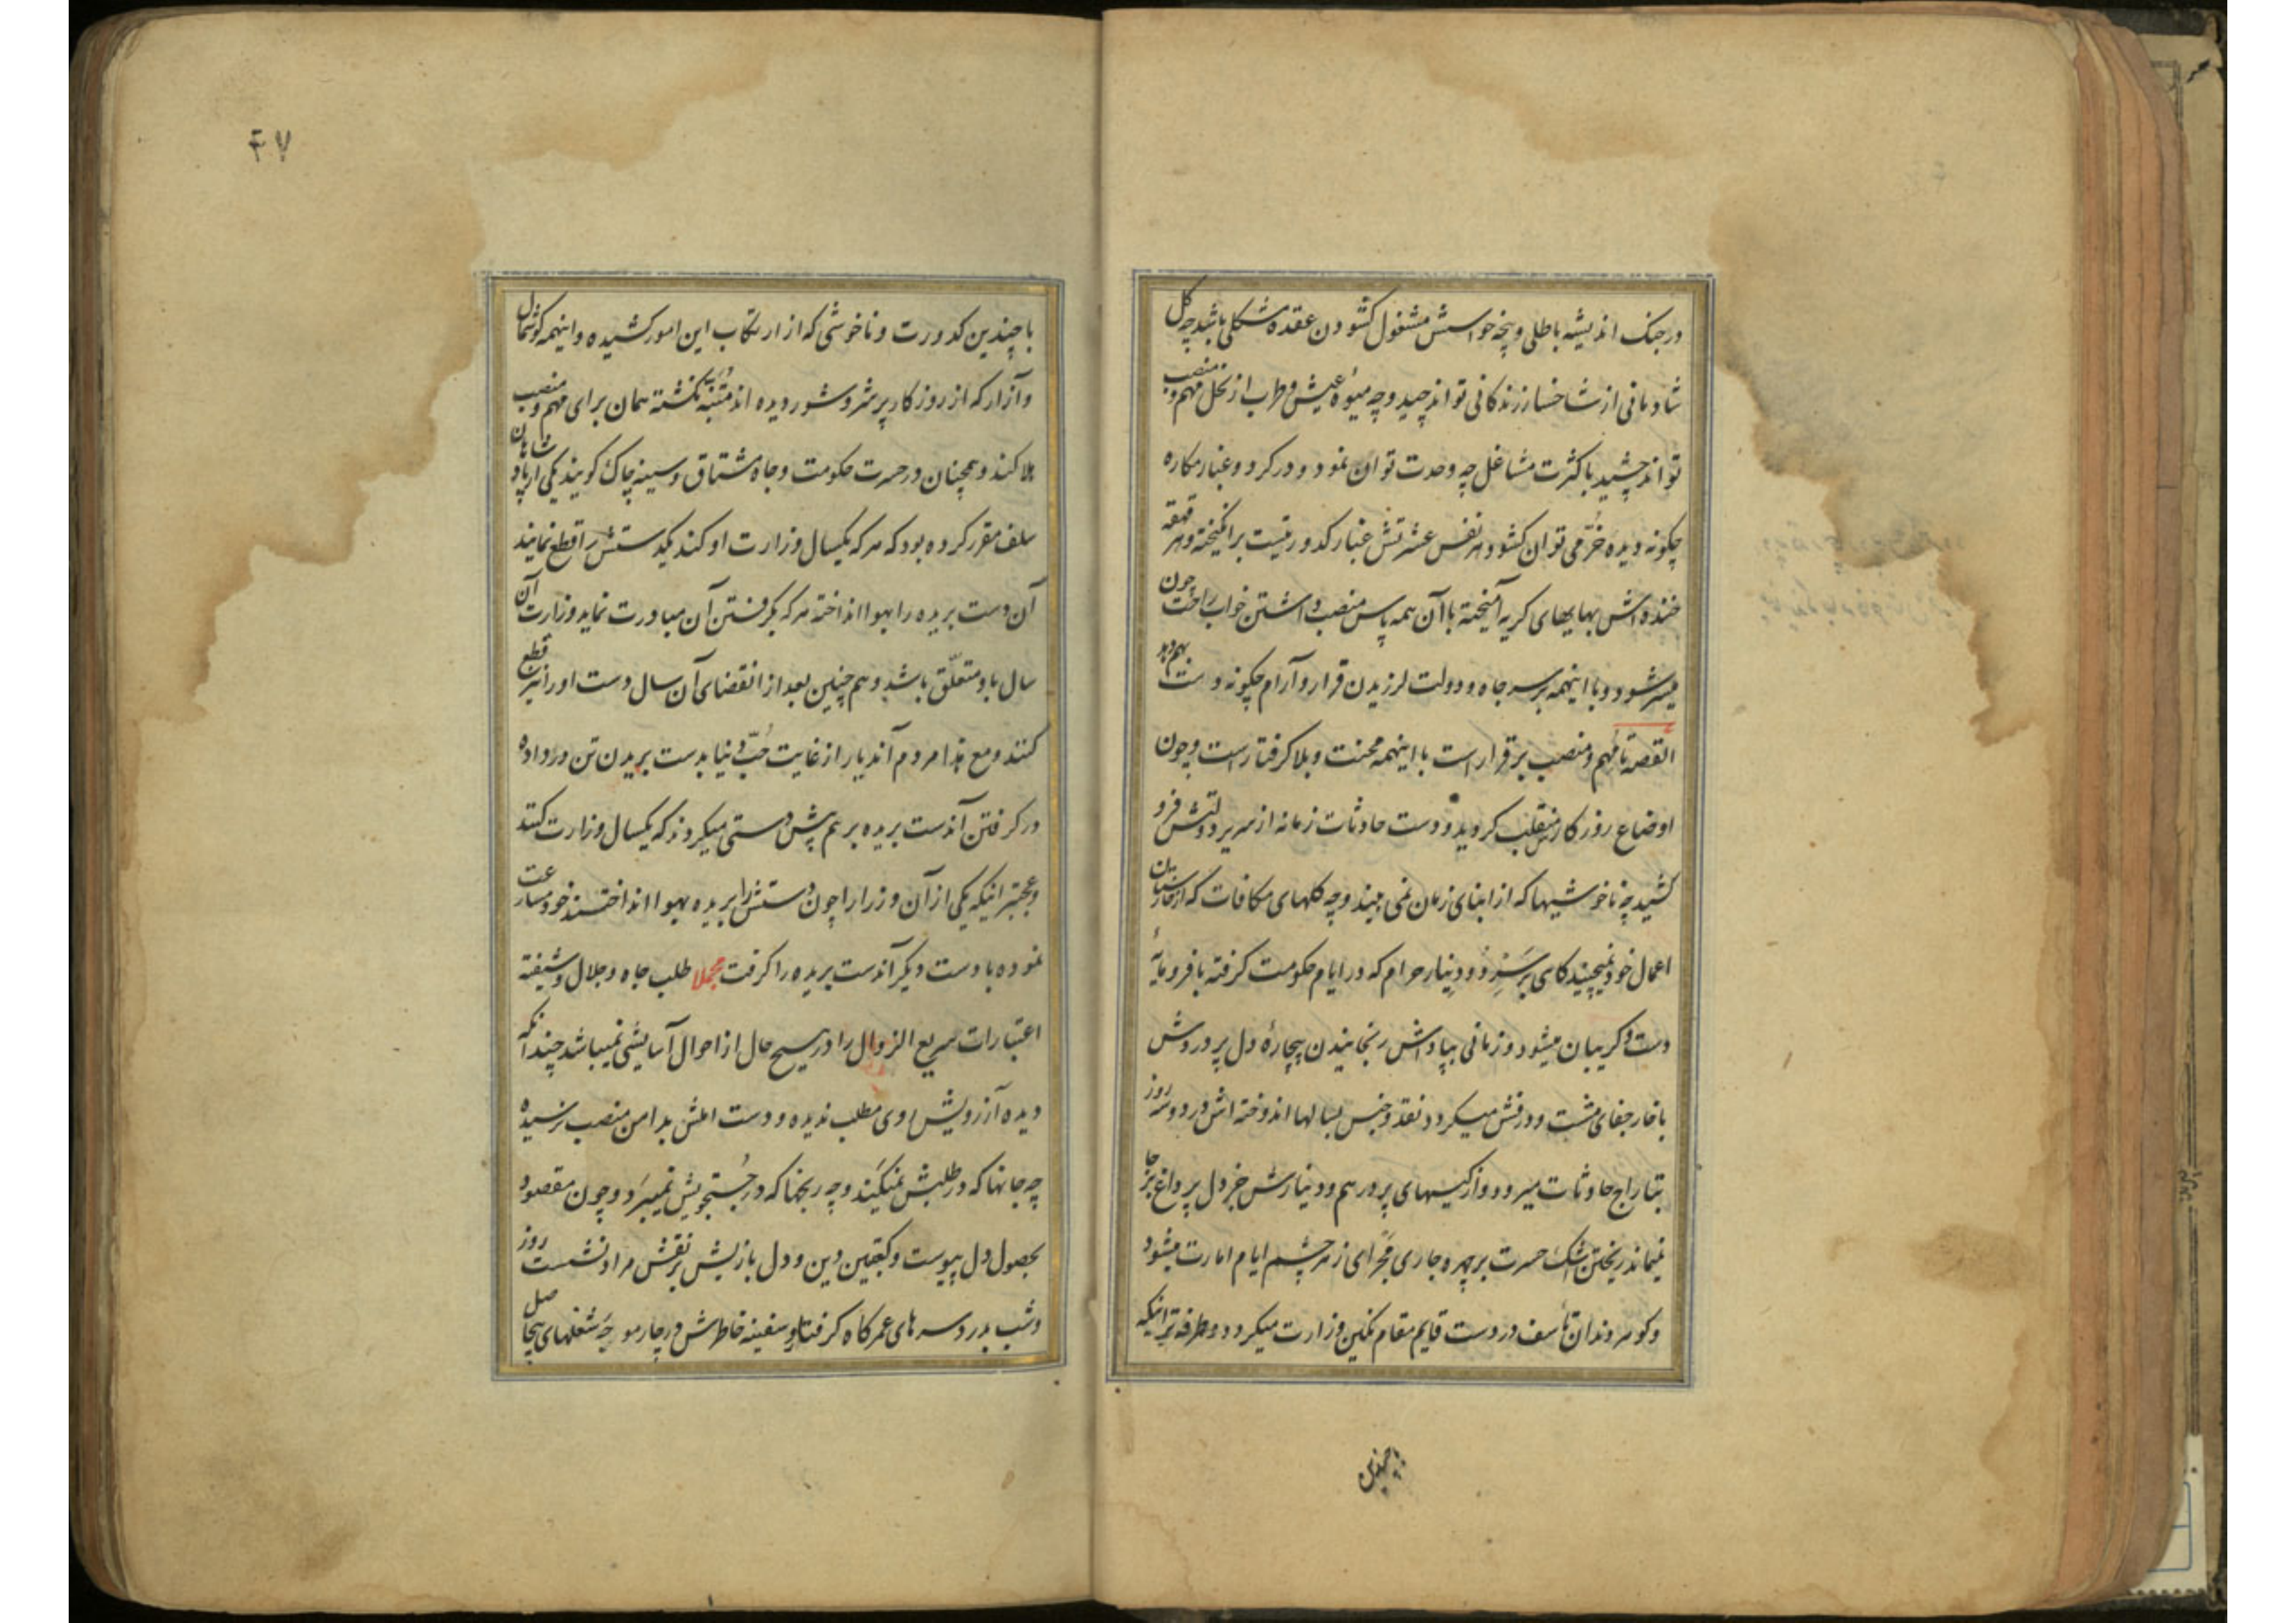 در جنک اندیشه باطلی و پنجه حواسش مشغول کشودن عقدهٔ مشکلی باشد چه کل
شادمانی از شاخسار زندکانی تواند چید و چه میوهٔ عیش و طرب از نخل مهم و منصب
تواند چشید با کثرت مشاغل چه وحدت توان نمود و در کرد و غبار مکاره
چکونه دیده خرّمی توان کشود هر نفس عشرتش غبار کدورتیست برانکیخته و هر قهقه
خنده‌اش بهایهای کریه آمیخته با آن همه پاس منصب داشتن خواب راحت چون
میسر شود و با اینهمه بر سر جاه و دولت لرزیدن قرار و آرام چکونه دست بهم دهد
القصه تا مهم و منصب برقرار است با اینهمه محنت و بلا کرفتار است و چون
اوضاع روزکار منقلب کردید و دست حادثات زمانه از سریر دولتش فرو
کشید چه ناخوشیها که از ابنای زمان نمی بیند و چه کلهای مکافات که از خارستان
اعمال خود نمیچیند کاهی بر سر زر و دینار حرام که در ایام حکومت کرفته با فرومایهٔ
دست و کریبان میشود و زمانی بپاداش رنجانیدن بیچارهٔ دل پر دردش
با خار جفای مشت و درفش میکردد نقد و جنس بسالها اندوخته‌اش در دو سه روز
بتاراج حادثات میرود و از کیسهای پر درهم و دینارش جز دل پر داغ بر جا
نمیماند ریختن اشک حسرت بر چهره جاری مجرای زر چشم ایام امارت میشود
و کوهر دندان تأسف در دست قایم مقام نکین وزارت میکردد و طرفه‌تر اینکه
با چندین
۴۷
با چندین کدورت و ناخوشی که از ارتکاب این امور کشیده و اینهمه کوشمال
و آزار که از روزکار پر شر و شور دیده اند متنبّه نکشته همان برای مهم و منصب
هلاکند و همچنان در حسرت حکومت و جاه مشتاق و سینه چاک کویند یکی از پادشاهان
سلف مقرر کرده بود که هر که یکسال وزارت او کند یکدستش را قطع نمایند
آن دست بریده را بهوا انداخته هر که بکرفتن آن مبادرت نماید وزارت آن
سال باو متعلّق باشد و هم چنین بعد از انقضای آن سال دست او را نیز قطع
کنند و مع هذا مردم آندیار از غایت حُبّ دنیا بدست بریدن تن در داده
در کرفتن آندست بریده بر هم پیش دستی میکردند که یکسال وزارت کنند
و عجبتر اینکه یکی از آن وزرا را چون دستش را بریده بهوا انداختند خود مسارعت
نموده با دست دیکر آندست بریده را کرفت مجملا طلب جاه و جلال و شیفته
اعتبارات سریع الزوال را در هیچ حال از احوال آسایشی نمیباشد چندانکه
دیده آرزویش روی مطلب ندیده و دست املش بدامن منصب نرسیده
چه جانها که در طلبش نمیکند و چه رنجها که در جُستجویش نمیبرد و چون مقصود
بحصول دل پیوست و کبعتین دین و دل بازیش بر نقش مراد نشست روز
و شب بدرد سرهای عمرکاه کرفتار و سفینه خاطرش در چار موجه شغلهای بیحاصل